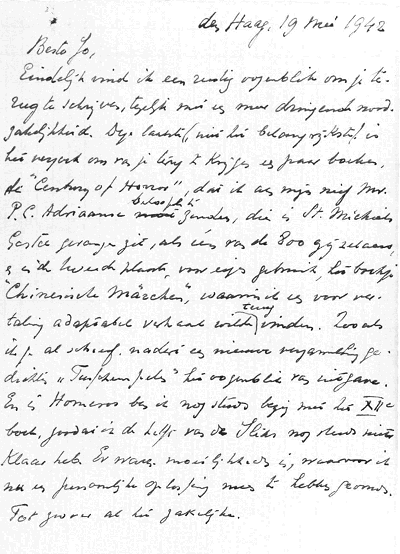 den Haag, 19 Mei 1942
Beste Jo,
Eindelijk vind ik een rustig oogenblik om je te-
rug te schrijven, tegelijk met een meer dringende nood-
zakelijkheid. Deze laatste (niet het belangrijkste) is
het verzoek om van je terug te krijgen een paar boeken.
de "Century of Horror", dat ik aan mijn neef Mr.
P.C. Adriaanse beloofde te zenden, die in St. Michiels
Gestel gevangen zit, als één van de 800 gijzelaars,
en in de tweede plaats, voor eigen gebruik, het boekje
"Chinesische Märchen", waarin ik een voor ver-
taling adaptabel verhaal wilde terug vinden. Zooals
ik je al schreef, nadert een nieuwe verzameling ge-
dichten het oogenblik van uitgave.
En in Homeros ben ik nog steeds bezig met het XIIe
boek, zoodat ik de helft van de Ilias nog steeds niet
klaar heb. Er waren moeilijkheden in, waarvoor ik
nu een persoonlijke oplossing meen te hebben gevonden.
Tot zoover al het zakelijke.